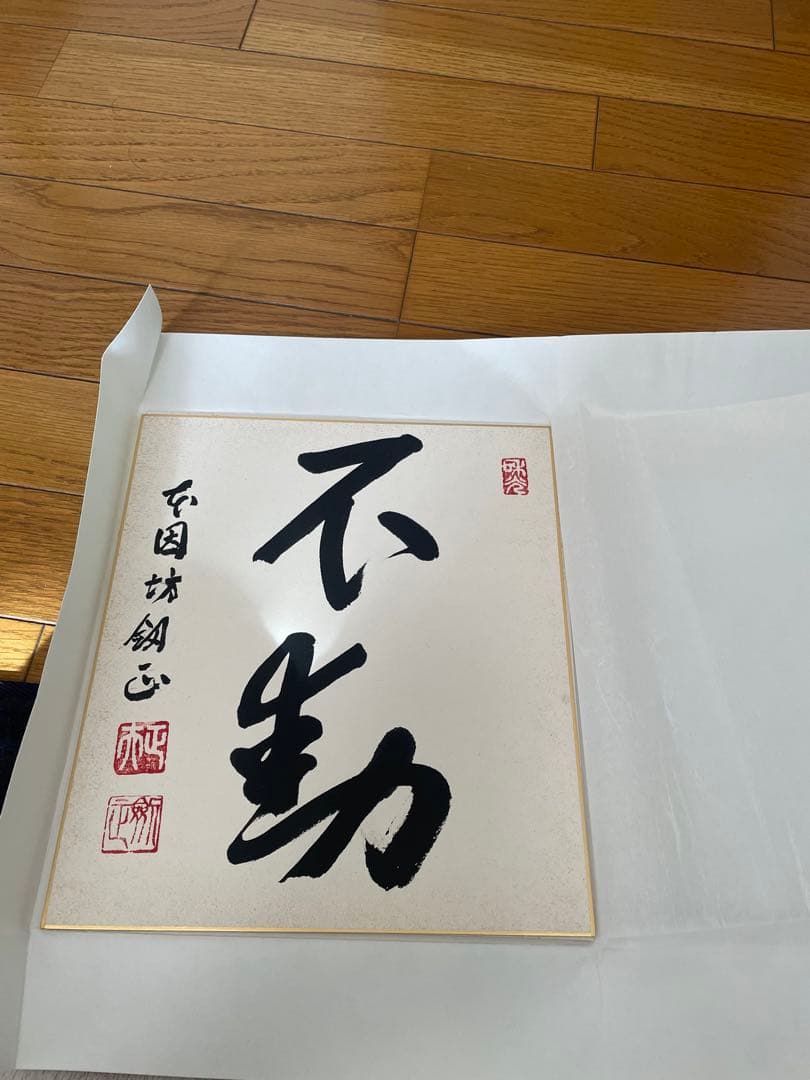 不動
本因坊剱正